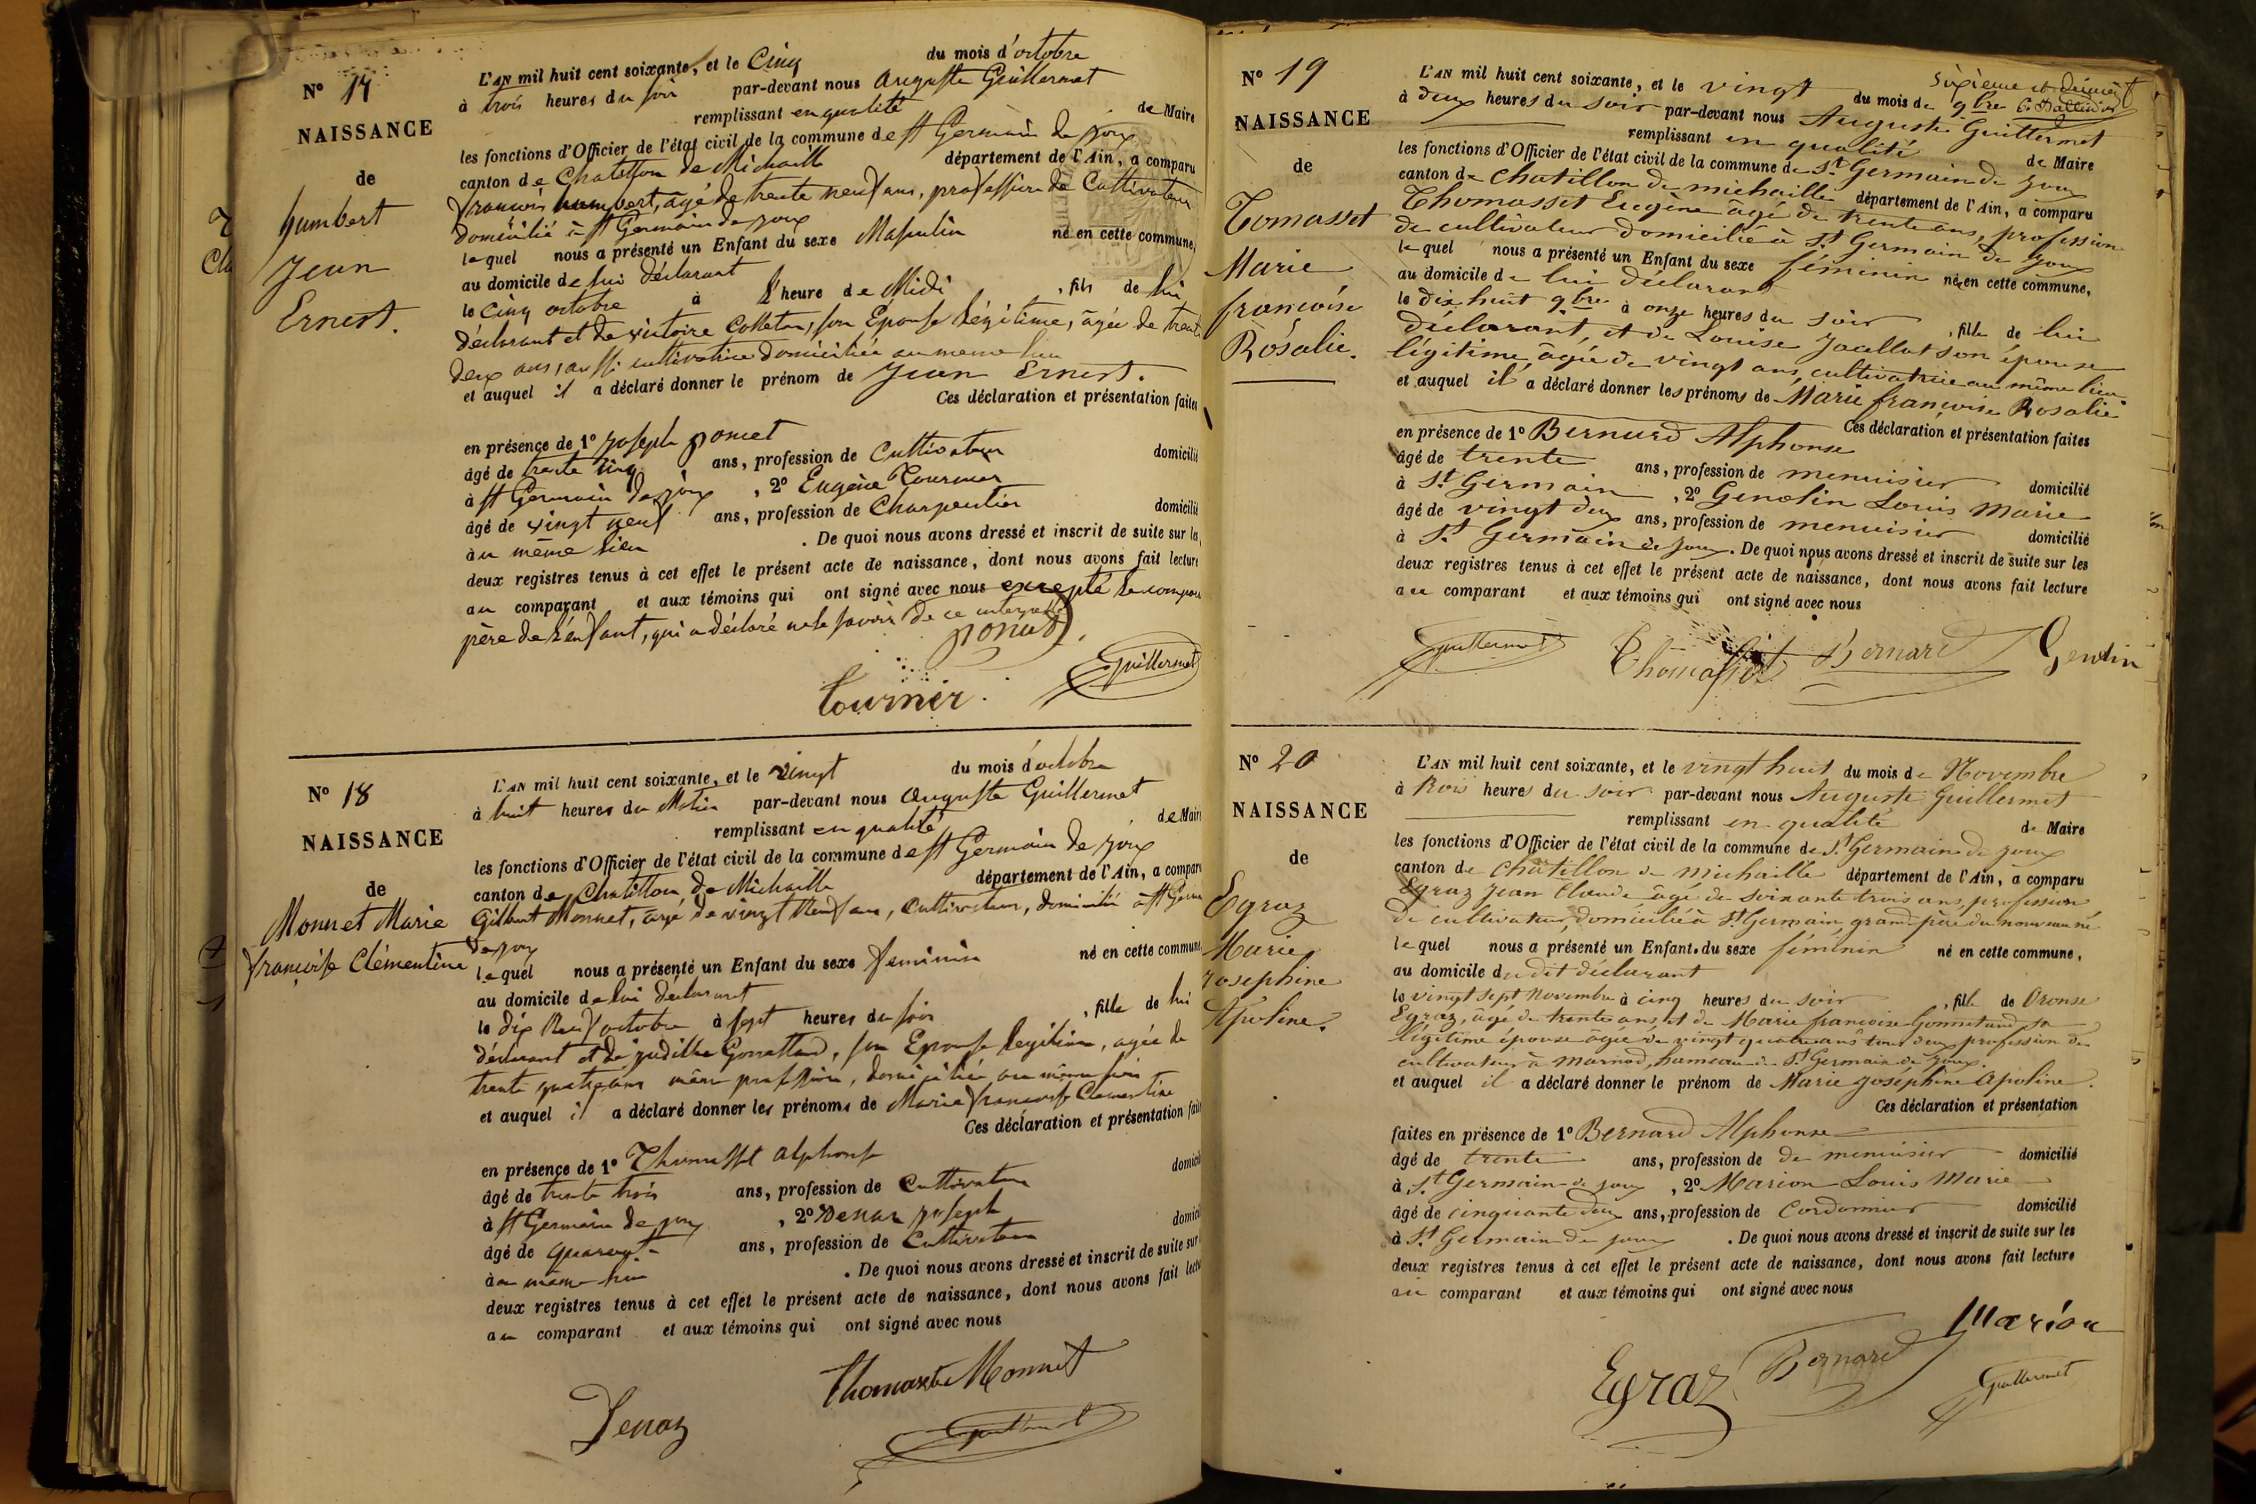 N° 17
NAISSANCE
de
humbert
Jean
Ernest.
L'AN mil huit cent soixante, et le Cinq du mois d'octobre
à trois heures du soir par-devant nous Auguste Guillermet
remplissant en qualité de Maire
les fonctions d'Officier de l'état civil de la commune de St Germain de joux
canton de Chatillon de Michaille département de l'Ain, a comparu
françois humbert, âgé de trente neuf ans, profession de Cultivateur
domicilié à St Germain de joux
lequel nous a présenté un Enfant du sexe Masculin né en cette commune,
au domicile de lui déclarant
le cinq octobre à l'heure de Midi, fils de lui
déclarant et de victoire Colleton, son Épouse légitime, âgée de trente
deux ans, aussi cultivatrice domiciliée au meme lieu
et auquel il a déclaré donner le prénom de Jean Ernest.
Ces déclaration et présentation faites
en présence de 1° Joseph poncet
âgé de trente cinq ans, profession de Cultivateur domicilié
à St Germain de joux, 2° Eugène Tournier
âgé de vingt neuf ans, profession de Charpentier domicilié
au même lieu. De quoi nous avons dressé et inscrit de suite sur les
deux registres tenus à cet effet le présent acte de naissance, dont nous avons fait lecture
au comparant et aux témoins qui ont signé avec nous excepté le
père de l'enfant, qui a déclaré ne le savoir de ce
poncet
Tournier Guillermet
N° 18
NAISSANCE
de
Monnet Marie
françoise Clémentine
L'AN mil huit cent soixante, et le vingt du mois d'octobre
à huit heures du Matin par-devant nous Auguste Guillermet
remplissant en qualité de Maire
les fonctions d'Officier de l'état civil de la commune de St Germain de joux
canton de Chatillon de Michaille département de l'Ain, a comparu
Gilbert Monnet, agé de vingt neuf ans, Cultivateur, domicilié à St Germain
de joux
lequel nous a présenté un Enfant du sexe feminin né en cette commune
au domicile de lui déclarant
le dix neuf octobre à sept heures du soir, fille de lui
déclarant et de judithe Gonettand, son Epouse légitime, agée de
trente quatre ans même profession, domiciliée au même lieu
et auquel il a déclaré donner les prénoms de Marie françoise Clementine
Ces déclaration et présentation faites
en présence de 1° Thomasset alphonse
âgé de trente trois ans, profession de Cultivateur domicilié
à St Germain de joux, 2° Denaz joseph
âgé de quarante ans, profession de Cultivateur domicilié
au même lieu. De quoi nous avons dressé et inscrit de suite sur
deux registres tenus à cet effet le présent acte de naissance, dont nous avons fait lecture
au comparant et aux témoins qui ont signé avec nous
Thomasset Monnet
Denaz Guillermet
sixième et dernier
N° 19
NAISSANCE
de
Tomasset
Marie
françoise
Rosalie.
L'AN mil huit cent soixante, et le vingt du mois de 9bre
à deux heures du soir par-devant nous Auguste Guillermet
remplissant en qualité de Maire
les fonctions d'Officier de l'état civil de la commune de St Germain de joux
canton de Chatillon de michaille département de l'Ain, a comparu
Thomasset Eugène âgé de trente ans, profession
de cultivateur domicilié à St Germain de joux
lequel nous a présenté un Enfant du sexe féminin né en cette commune,
au domicile de lui déclarant
le dix huit 9bre à onze heures du soir, fille de lui
déclarant, et de Louise Jacllat son épouse
légitime, âgée de vingt ans, cultivatrice au même lieu
et auquel il a déclaré donner les prénoms de Marie françoise Rosalie
Ces déclaration et présentation faites
en présence de 1° Bernard Alphonse
âgé de trente ans, profession de menuisier domicilié
à St Germain, 2° Genolin Louis Marie
âgé de vingt deux ans, profession de menuisier domicilié
à St Germain de joux. De quoi nous avons dressé et inscrit de suite sur les
deux registres tenus à cet effet le présent acte de naissance, dont nous avons fait lecture
au comparant et aux témoins qui ont signé avec nous
Guillermet Thomasset Bernard Genolin
N° 20
NAISSANCE
de
Egraz
Marie
Josephine
Apoline.
L'AN mil huit cent soixante, et le vingt huit du mois de Novembre
à trois heures du soir par-devant nous Auguste Guillermet
remplissant en qualité de Maire
les fonctions d'Officier de l'état civil de la commune de St Germain de joux
canton de Chatillon de michaille département de l'Ain, a comparu
Egraz Jean Claude âgé de soixante trois ans, profession
de cultivateur, domicilié à St Germain, grand père du nouveau né
lequel nous a présenté un Enfant du sexe féminin né en cette commune,
au domicile du dit déclarant
le vingt sept Novembre à cinq heures du soir, fille de Oronse
Egraz, âgé de trente ans et de Marie françoise Gonnetand sa
légitime épouse âgée de vingt quatre ans tous deux profession de
cultivateur à marnod, hameau de St Germain de joux.
et auquel il a déclaré donner le prénom de Marie Joséphine Apoline.
Ces déclaration et présentation
faites en présence de 1° Bernard Alphonse
âgé de trente ans, profession de de menuisier domicilié
à St Germain de joux, 2° Marion Louis Marie
âgé de cinquante deux ans, profession de Cordonnier domicilié
à St Germain de joux. De quoi nous avons dressé et inscrit de suite sur les
deux registres tenus à cet effet le présent acte de naissance, dont nous avons fait lecture
au comparant et aux témoins qui ont signé avec nous
Marion
Egraz Bernard Guillermet